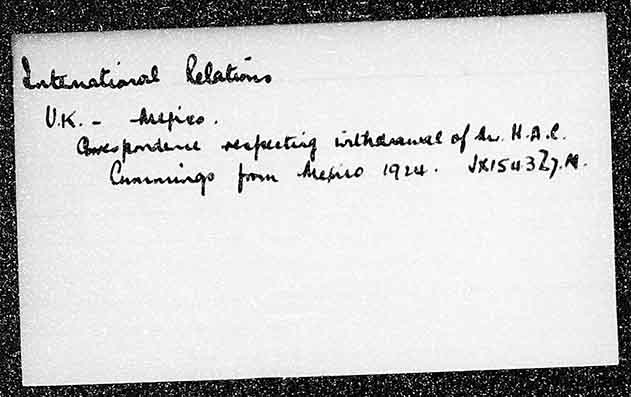 International Relations
U.K. - Mexico.
Correspondence respecting withdrawal of Mr. H.A.C.
Cummings from Mexico 1924. JX1543